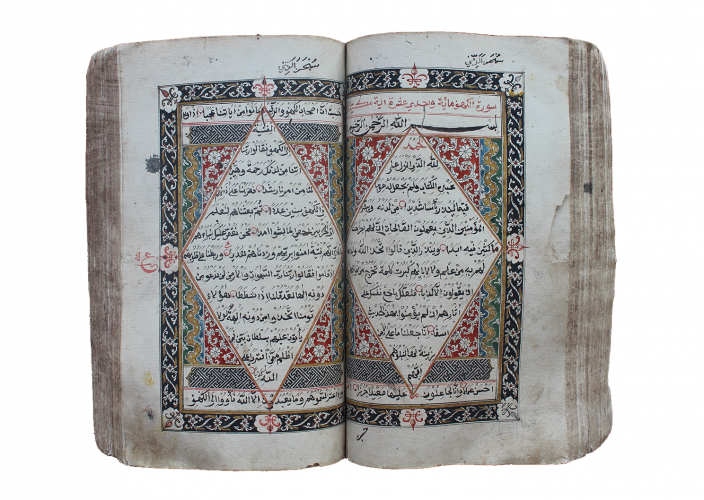 سورة الكهف مائة وحدي عشرة اية مكية
بسم الله الرحمن الرحيم
الحمد
لله الذي انزل على
عبده الكتاب ولم يجعل له عوجا
قيما لينذر باسا شديدا من لدنه ويبشر
المؤمنين الذين يعملون الصالحات ان لهم اجرا حسنا
ماكثين فيه ابدا وينذر الذين قالوا اتخذ الله ولدا ما
لهم به من علم ولا لابائهم كبرت كلمة تخرج من افواههم
ان يقولون الا كذبا فلعلك باخع نفسك على
اثارهم ان لم يؤمنوا بهذا الحديث
اسفا انا جعلنا ما على الارض
زينة لها لنبلوهم
ايهم
احسن عملا وانا لجاعلون ما عليها صعيدا جرزا ام
حسبت ان اصحاب الكهف والرقيم كانوا من اياتنا عجبا اذ اوى
الفتية
الى الكهف فقالوا ربنا
اتنا من لدنك رحمة وهيئ
لنا من امرنا رشدا فضربنا على اذانهم
في الكهف سنين عددا ثم بعثناهم لنعلم
اي الحزبين احصى لما لبثوا امدا نحن نقص عليك نباهم
بالحق انهم فتية امنوا بربهم وزدناهم هدى وربطنا على قلوبهم
اذ قاموا فقالوا ربنا رب السموات والارض لن ندعو من
دونه الها لقد قلنا اذا شططا هؤلاء
قومنا اتخذوا من دونه الهة لولا
ياتون عليهم بسلطان بين فمن
اظلم ممن افترى على
الله
كذبا واذ اعتزلتموهم وما يعبدون الا الله فاووا الى الكهف